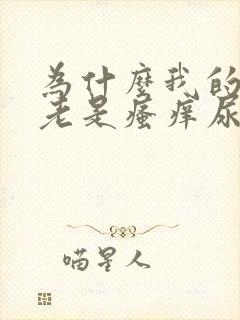 為什麼我的
老是瘙痒尿
喵星人